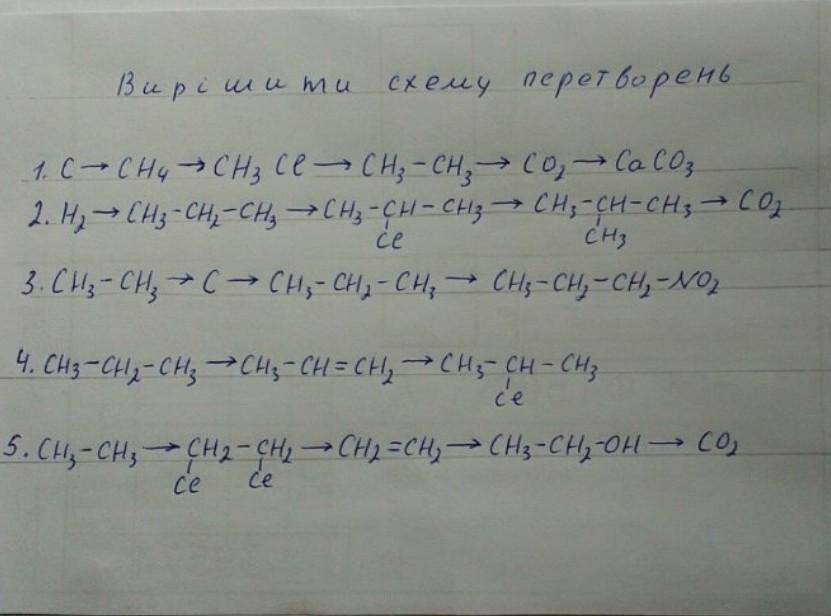 Вирішити схему перетворень
1. C → CH₄ → CH₃Cl → CH₃-CH₃ → CO₂ → CaCO₃
2. H₂ → CH₃-CH₂-CH₃ → CH₃-CH-CH₃ → CH₃-CH-CH₃ → CO₂
Cl CH₃
3. CH₃-CH₃ → C → CH₃-CH₂-CH₃ → CH₃-CH₂-CH₂-NO₂
4. CH₃-CH₂-CH₃ → CH₃-CH=CH₂ → CH₃-CH-CH₃
Cl
5. CH₃-CH₃ → CH₂-CH₂ → CH₂=CH₂ → CH₃-CH₂-OH → CO₂
Cl Cl